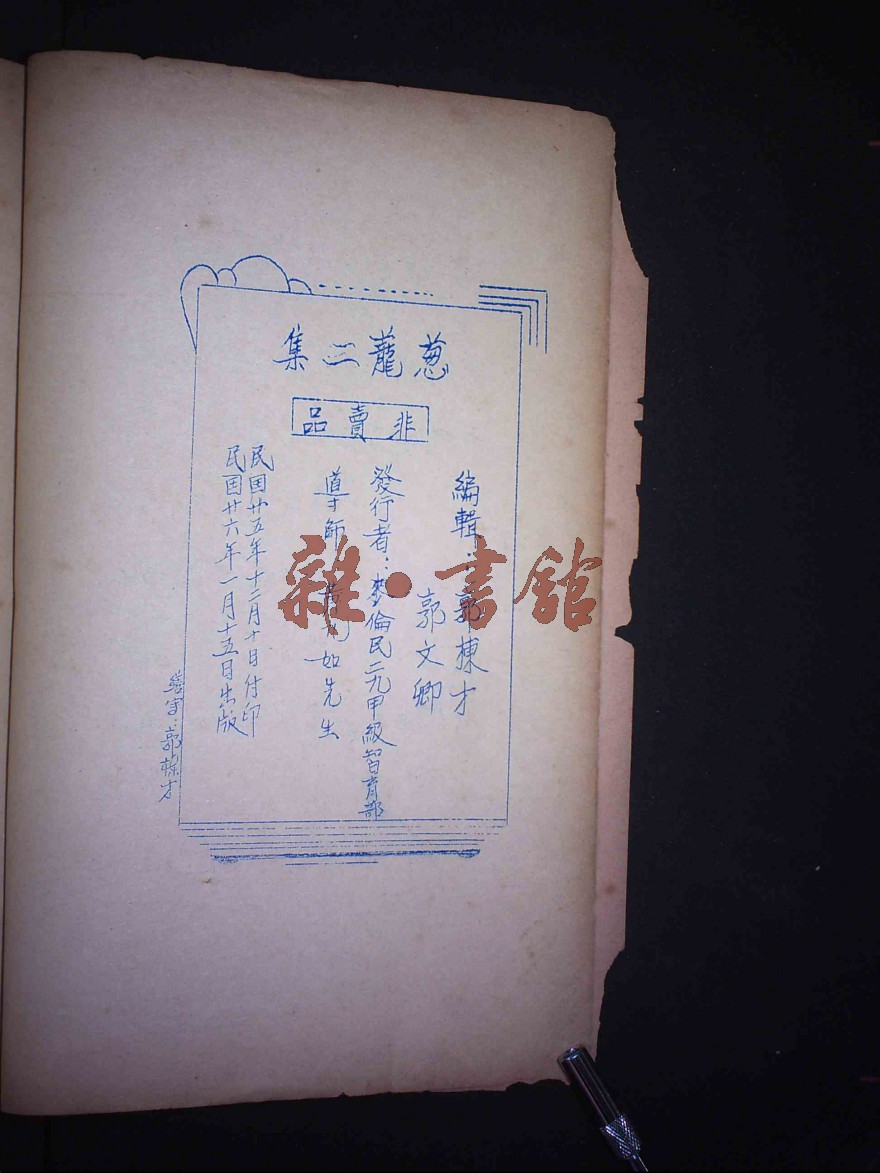 葱蘢二集
非賣品
編輯：郭棟才
郭文卿
發行者：麥倫民二九甲級智育部
導師 如先生
民国廿五年十二月十日付印
民国廿六年一月十五日出版
繕写：郭棟才
雜·書館